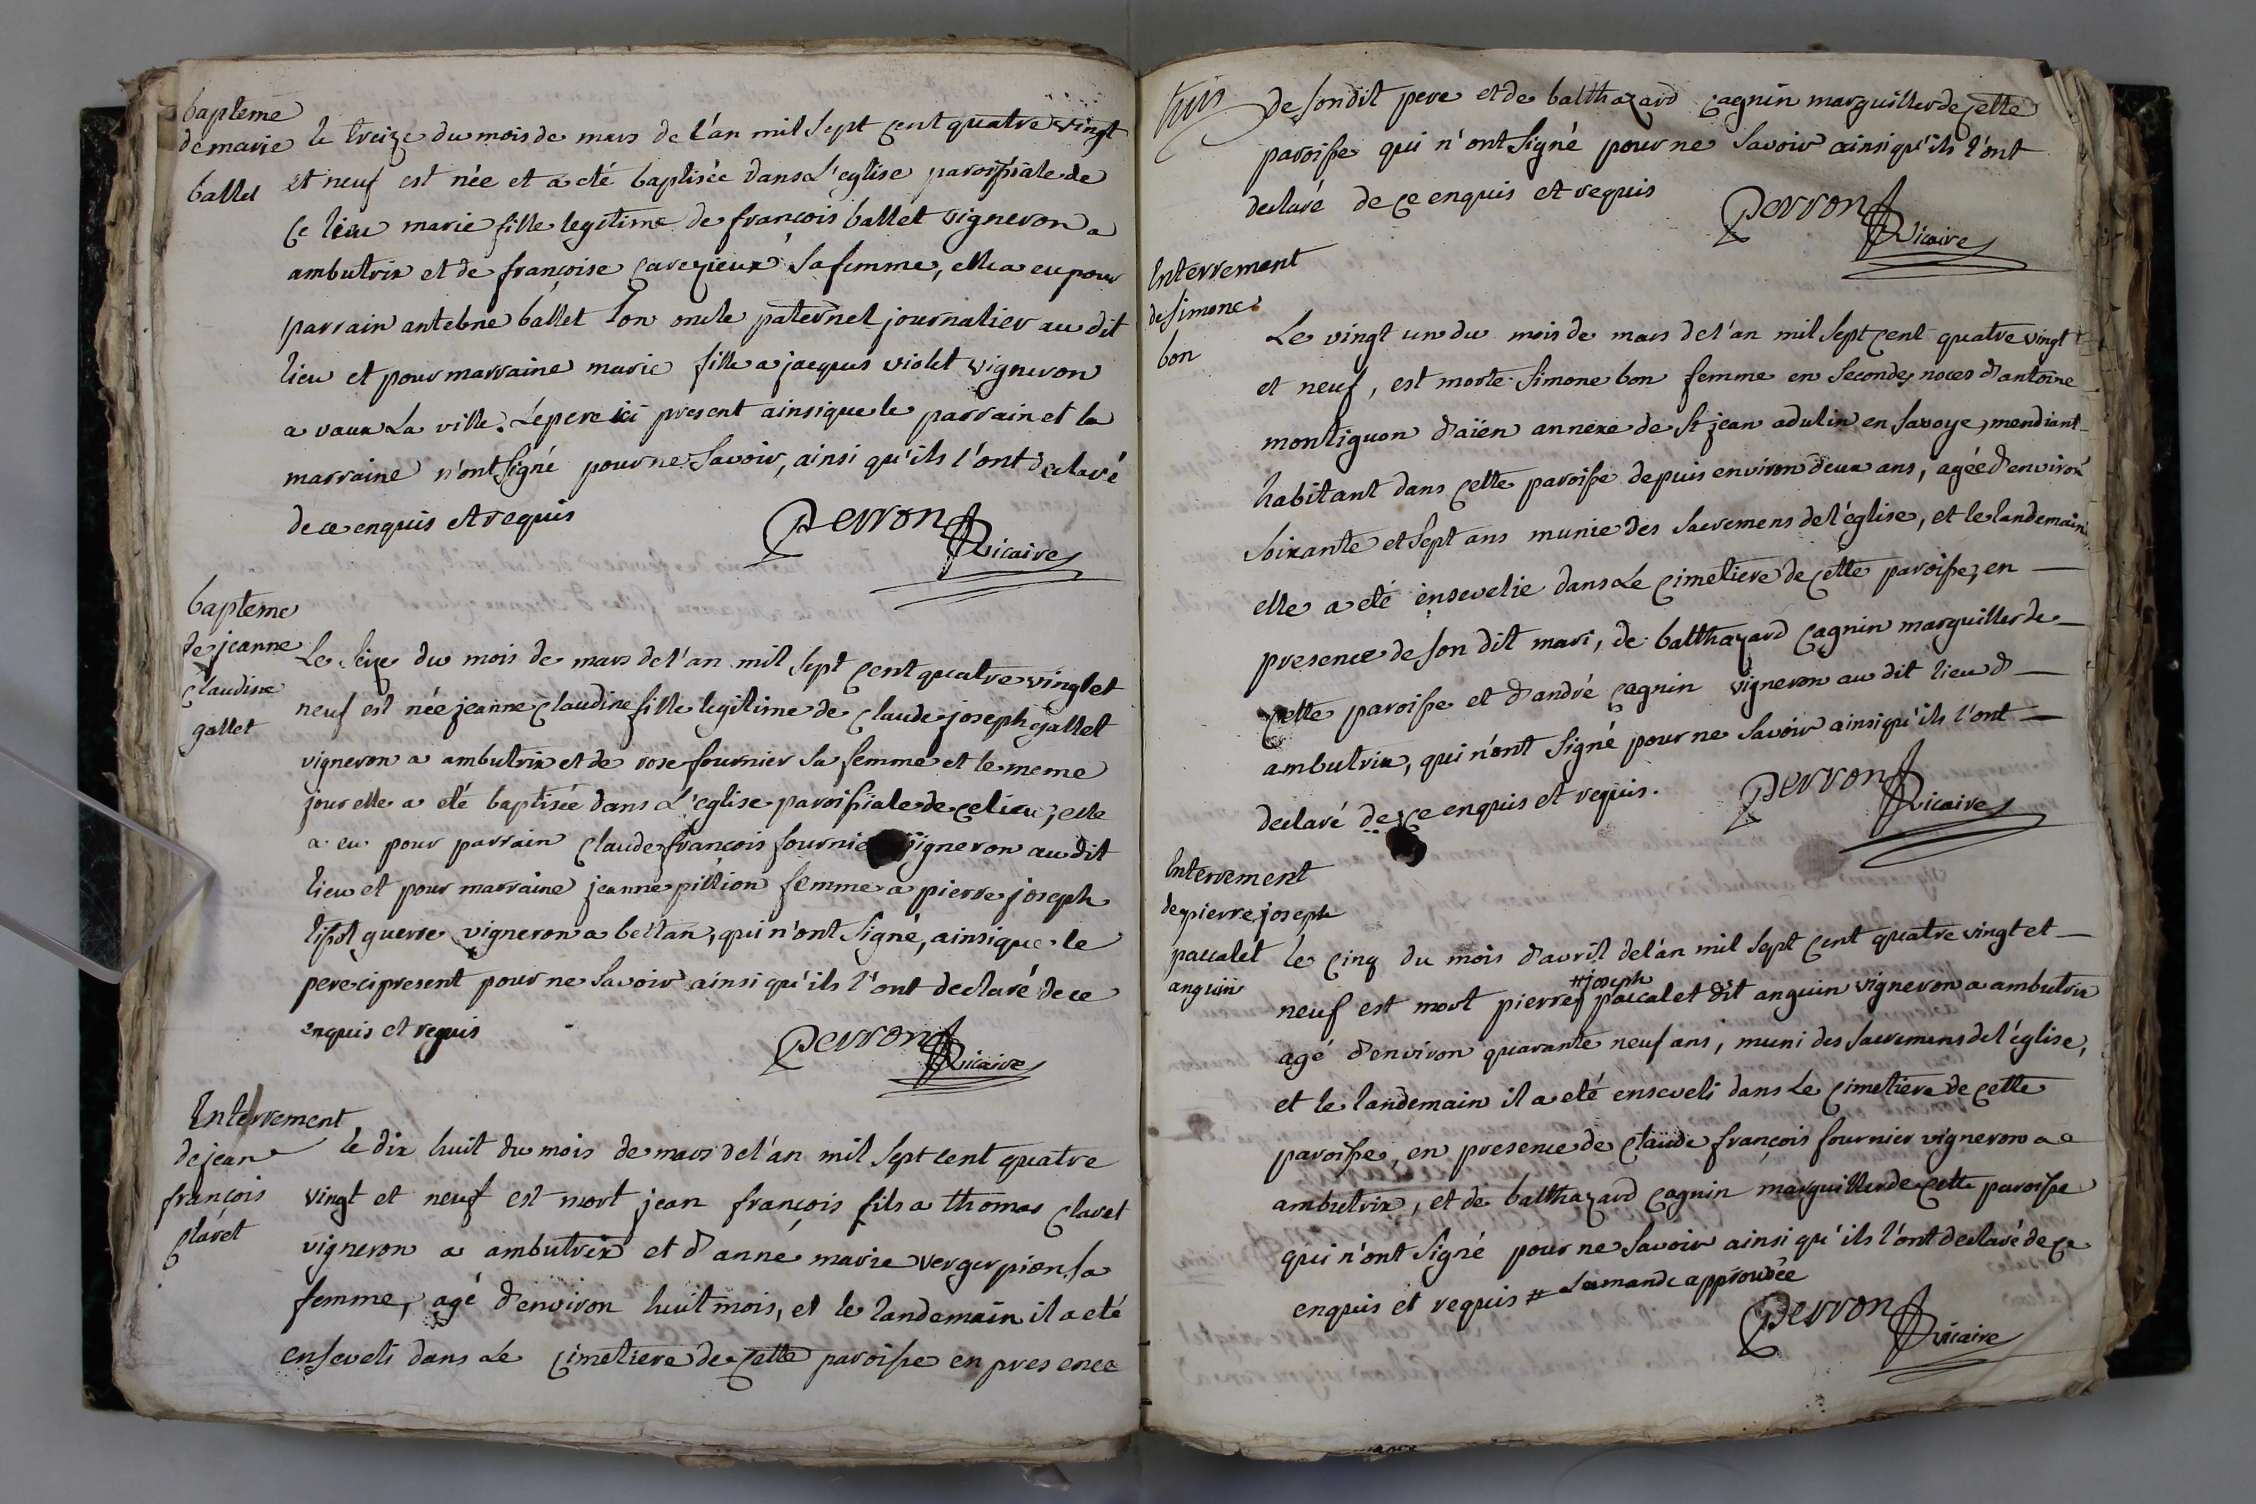 bapteme
de marie
ballet
le treize du mois de mars de l'an mil sept cent quatre vingt
et neuf est née et a eté baptisée dans L'eglise paroissiale de
ce lieu marie fille legitime de françois ballet vigneron a
ambutrix et de françoise carezieux sa femme, elle a eu pour
parrain antelme ballet son oncle paternel journalier au dit
lieu et pour marraine marie fille a jacques violet vigneron
a vaux La ville. Le pere ici present ainsi que le parrain et la
marraine n'ont signé pour ne savoir, ainsi qu'ils l'ont declaré
de ce enquis et requis
Perron
vicaire
bapteme
de jeanne
claudine
gallet
Le seize du mois de mars de l'an mil sept cent quatre vingt et
neuf est née jeanne claudine fille legitime de claude joseph gallet
vigneron a ambutrix et de rose fournier sa femme et le meme
jour elle a eté baptisée dans L'eglise paroissiale de ce lieu, elle
a eu pour parrain claude françois fournier vigneron au dit
lieu et pour marraine jeanne pillion femme a pierre joseph
guerre vigneron a bettan, qui n'ont signé, ainsi que le
pere ci present pour ne savoir ainsi qu'ils l'ont declaré de ce
enquis et requis
Perron
vicaire
Interrement
de jean
françois
claret
le dix huit du mois de mars de l'an mil sept cent quatre
vingt et neuf est mort jean françois fils a thomas claret
vigneron a ambutrix et d'anne marie verger pion sa
femme, agé d'environ huit mois, et le landemain il a eté
enseveli dans Le cimetiere de cette paroisse en presence
de son dit pere et de balthazard cagnin marguillier de cette
paroisse qui n'ont signé pour ne savoir ainsi qu'ils l'ont
declaré de ce enquis et requis
Perron
vicaire
Interrement
de simone
bon
Le vingt un du mois de mars de l'an mil sept cent quatre vingt
et neuf, est morte simone bon femme en secondes noces d'antoine
montiguon d'aïen annexe de st jean adulin en savoye, mendiant
habitant dans cette paroisse depuis environ deux ans, agée d'environ
soixante et sept ans munie des sacremens de l'église, et le landemain
elle a eté ensevelie dans Le cimetiere de cette paroisse, en
presence de son dit mari, de balthazard cagnin marguillier de
cette paroisse et d'andré cagnin vigneron au dit lieu d
ambutrix, qui n'ont signé pour ne savoir ainsi qu'ils l'ont
declaré de ce enquis et requis.
Perron
vicaire
Interrement
de pierre joseph
pascalet
anguin
le cinq du mois d'avril de l'an mil sept cent quatre vingt et
# joseph
neuf est mort pierre # pascalet dit anguin vigneron a ambutrix
agé d'environ quarante neuf ans, muni des sacremens de l'église,
et le landemain il a eté enseveli dans Le cimetiere de cette
paroisse, en presence de claude françois fournier vigneron a
ambutrix, et de balthazard cagnin marguillier de cette paroisse
qui n'ont signé pour ne savoir ainsi qu'ils l'ont declaré de ce
enquis et requis # approuvée
Perron
vicaire